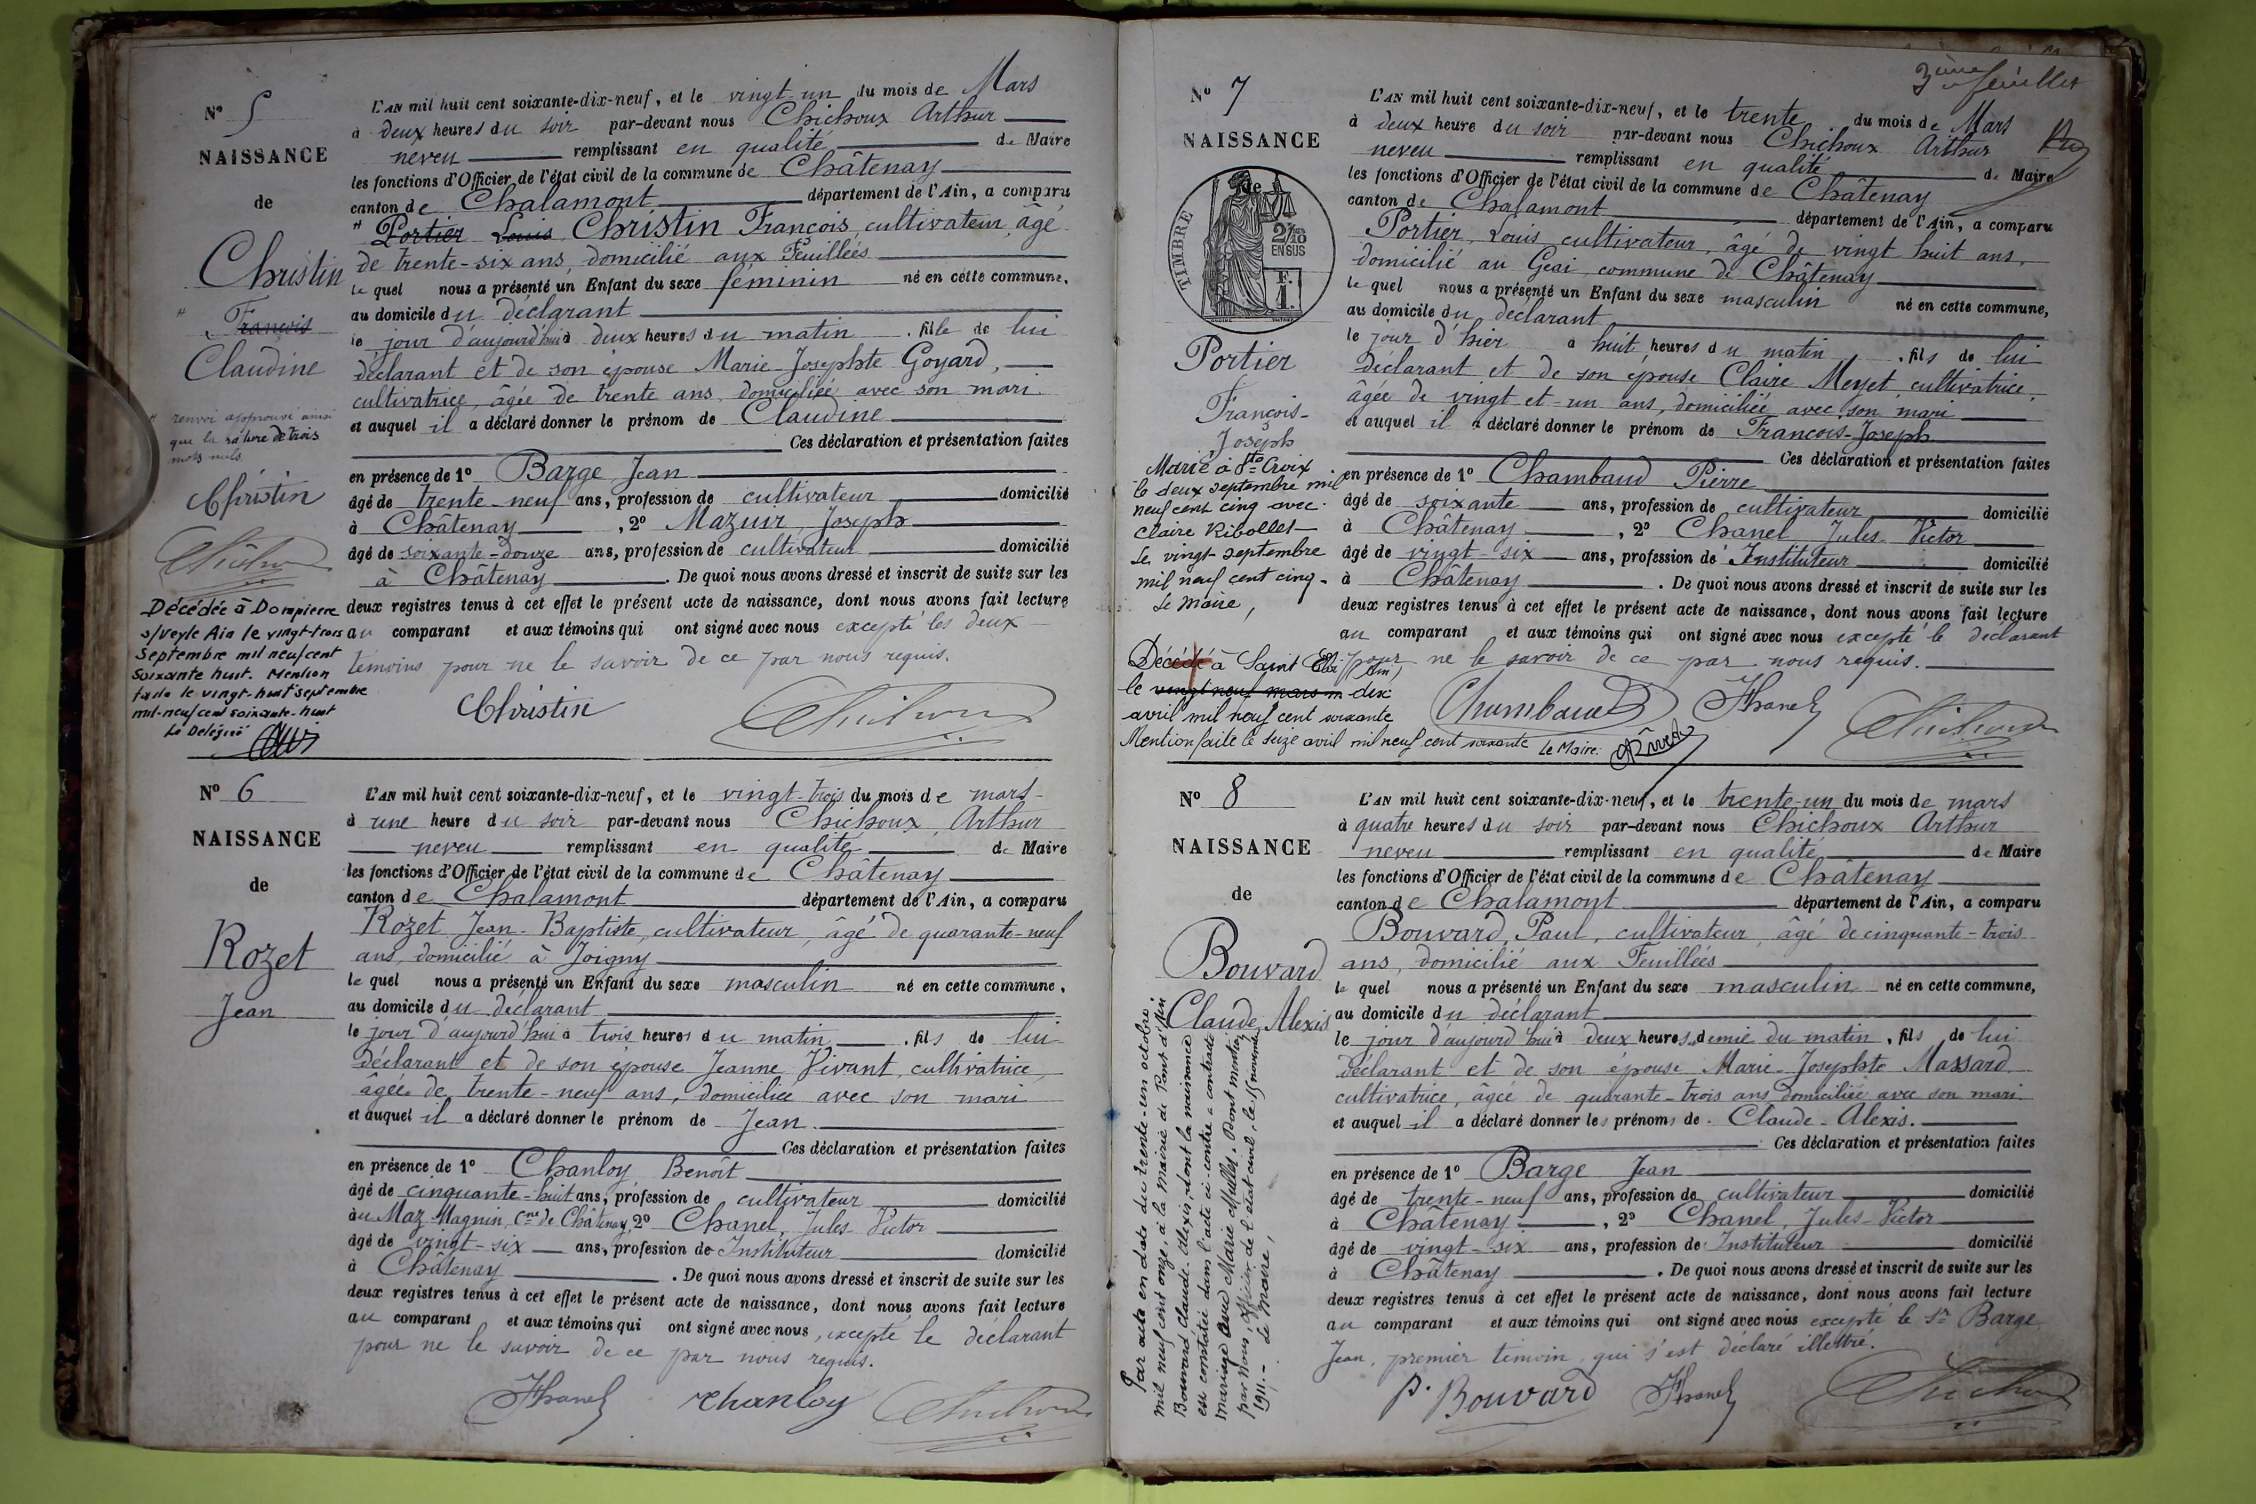 N° 5
NAISSANCE
de
Christin
" François
Claudine
" renvoi approuvé ainsi
que la rature de trois
mots nuls
Christin
Chichoux
Décédée à Dompierre
s/Veyle Ain le vingt-trois
Septembre mil neuf cent
Soixante huit. Mention
faite le vingt-huit septembre
mil-neuf cent soixante-huit
Le Délégué
L'AN mil huit cent soixante-dix-neuf, et le vingt-un du mois de Mars
à deux heures du soir par-devant nous Chichoux Arthur
neveu remplissant en qualité de Maire
les fonctions d'Officier de l'état civil de la commune de Châtenay
canton de Chalamont département de l'Ain, a comparu
" Portier Louis Christin François, cultivateur, âgé
de trente-six ans, domicilié aux Feuillées
le quel nous a présenté un Enfant du sexe féminin né en cette commune,
au domicile du déclarant
le jour d'aujourd'hui à deux heures du matin, fille de lui
déclarant et de son épouse Marie-Josephte Goyard,
cultivatrice, âgée de trente ans, domiciliée avec son mari
et auquel il a déclaré donner le prénom de Claudine
Ces déclaration et présentation faites
en présence de 1° Barge Jean
âgé de trente-neuf ans, profession de cultivateur domicilié
à Châtenay, 2° Mazuir, Joseph
âgé de soixante-douze ans, profession de cultivateur domicilié
à Châtenay. De quoi nous avons dressé et inscrit de suite sur les
deux registres tenus à cet effet le présent acte de naissance, dont nous avons fait lecture
au comparant et aux témoins qui ont signé avec nous excepté les deux
témoins pour ne le savoir de ce par nous requis.
Christin Chichoux
N° 6
NAISSANCE
de
Rozet
Jean
L'AN mil huit cent soixante-dix-neuf, et le vingt-trois du mois de mars
à une heure du soir par-devant nous Chichoux, Arthur
neveu remplissant en qualité de Maire
les fonctions d'Officier de l'état civil de la commune de Châtenay
canton de Chalamont département de l'Ain, a comparu
Rozet Jean-Baptiste, cultivateur, âgé de quarante-neuf
ans, domicilié à Joigny
le quel nous a présenté un Enfant du sexe masculin né en cette commune,
au domicile du déclarant
le jour d'aujourd'hui à trois heures du matin, fils de lui
déclarant et de son épouse Jeanne Vivant, cultivatrice,
âgée de trente-neuf ans, domiciliée avec son mari
et auquel il a déclaré donner le prénom de Jean.
Ces déclaration et présentation faites
en présence de 1° Chanloy Benoît
âgé de cinquante-huit ans, profession de cultivateur domicilié
au Maz-Magnin, Cne de Châtenay, 2° Chanel, Jules-Victor
âgé de vingt-six ans, profession de Instituteur domicilié
à Châtenay. De quoi nous avons dressé et inscrit de suite sur les
deux registres tenus à cet effet le présent acte de naissance, dont nous avons fait lecture
au comparant et aux témoins qui ont signé avec nous, excepté le déclarant
pour ne le savoir de ce par nous requis.
JChanel chanloy Chichoux
3ème feuillet
N° 7
NAISSANCE
de
TIMBRE
2/10 EN SUS
F. 1.
Portier
François-
Joseph
Marié à Ste Croix
le deux septembre mil
neuf cent cinq avec
Claire Ribollet
Le vingt septembre
mil neuf cent cinq.
Le Maire,
Décédé à Saint Eloi (Ain)
le vingt neuf mars m dix
avril mil neuf cent soixante
Mention faite le seize avril mil neuf cent soixante Le Maire:
L'AN mil huit cent soixante-dix-neuf, et le trente du mois de Mars
à deux heure du soir par-devant nous Chichoux Arthur
neveu remplissant en qualité de Maire
les fonctions d'Officier de l'état civil de la commune de Châtenay
canton de Chalamont département de l'Ain, a comparu
Portier, Louis, cultivateur, âgé de vingt huit ans,
domicilié au Geai, commune de Châtenay
le quel nous a présenté un Enfant du sexe masculin né en cette commune,
au domicile du déclarant
le jour d'hier à huit heures du matin, fils de lui
déclarant et de son épouse Claire Meyset, cultivatrice,
âgée de vingt et un ans, domiciliée avec son mari
et auquel il a déclaré donner le prénom de François-Joseph
Ces déclaration et présentation faites
en présence de 1° Chambaud Pierre
âgé de soixante ans, profession de cultivateur domicilié
à Châtenay, 2° Chanel, Jules-Victor
âgé de vingt-six ans, profession de Instituteur domicilié
à Châtenay. De quoi nous avons dressé et inscrit de suite sur les
deux registres tenus à cet effet le présent acte de naissance, dont nous avons fait lecture
au comparant et aux témoins qui ont signé avec nous excepté le déclarant
pour ne le savoir de ce par nous requis.
Chambaud JChanel Chichoux
N° 8
NAISSANCE
de
Bouvard
Claude, Alexis
Par acte en date du trente-un octobre
mil neuf cent onze, à la mairie de Pont d'Ain
Bouvard Claude-Alexis, dont la naissance
est constatée dans l'acte ci-contre a contracté
mariage avec Marie Mullet. Dont mention
par Nous, officier de l'état civil, le 15 novembre
1911. - Le Maire,
L'AN mil huit cent soixante-dix-neuf, et le trente-un du mois de mars
à quatre heures du soir par-devant nous Chichoux Arthur
neveu remplissant en qualité de Maire
les fonctions d'Officier de l'état civil de la commune de Châtenay
canton de Chalamont département de l'Ain, a comparu
Bouvard, Paul, cultivateur, âgé de cinquante-trois
ans, domicilié aux Feuillées
le quel nous a présenté un Enfant du sexe masculin né en cette commune,
au domicile du déclarant
le jour d'aujourd'hui à deux heures demie du matin, fils de lui
déclarant et de son épouse Marie-Josephte Massard
cultivatrice, âgée de quarante-trois ans domiciliée avec son mari.
et auquel il a déclaré donner les prénoms de Claude-Alexis.
Ces déclaration et présentation faites
en présence de 1° Barge Jean
âgé de trente-neuf ans, profession de cultivateur domicilié
à Châtenay, 2° Chanel, Jules-Victor
âgé de vingt-six ans, profession de Instituteur domicilié
à Châtenay. De quoi nous avons dressé et inscrit de suite sur les
deux registres tenus à cet effet le présent acte de naissance, dont nous avons fait lecture
au comparant et aux témoins qui ont signé avec nous excepté le sr Barge
Jean, premier témoin qui s'est déclaré illettré.
P. Bouvard JChanel Chichoux